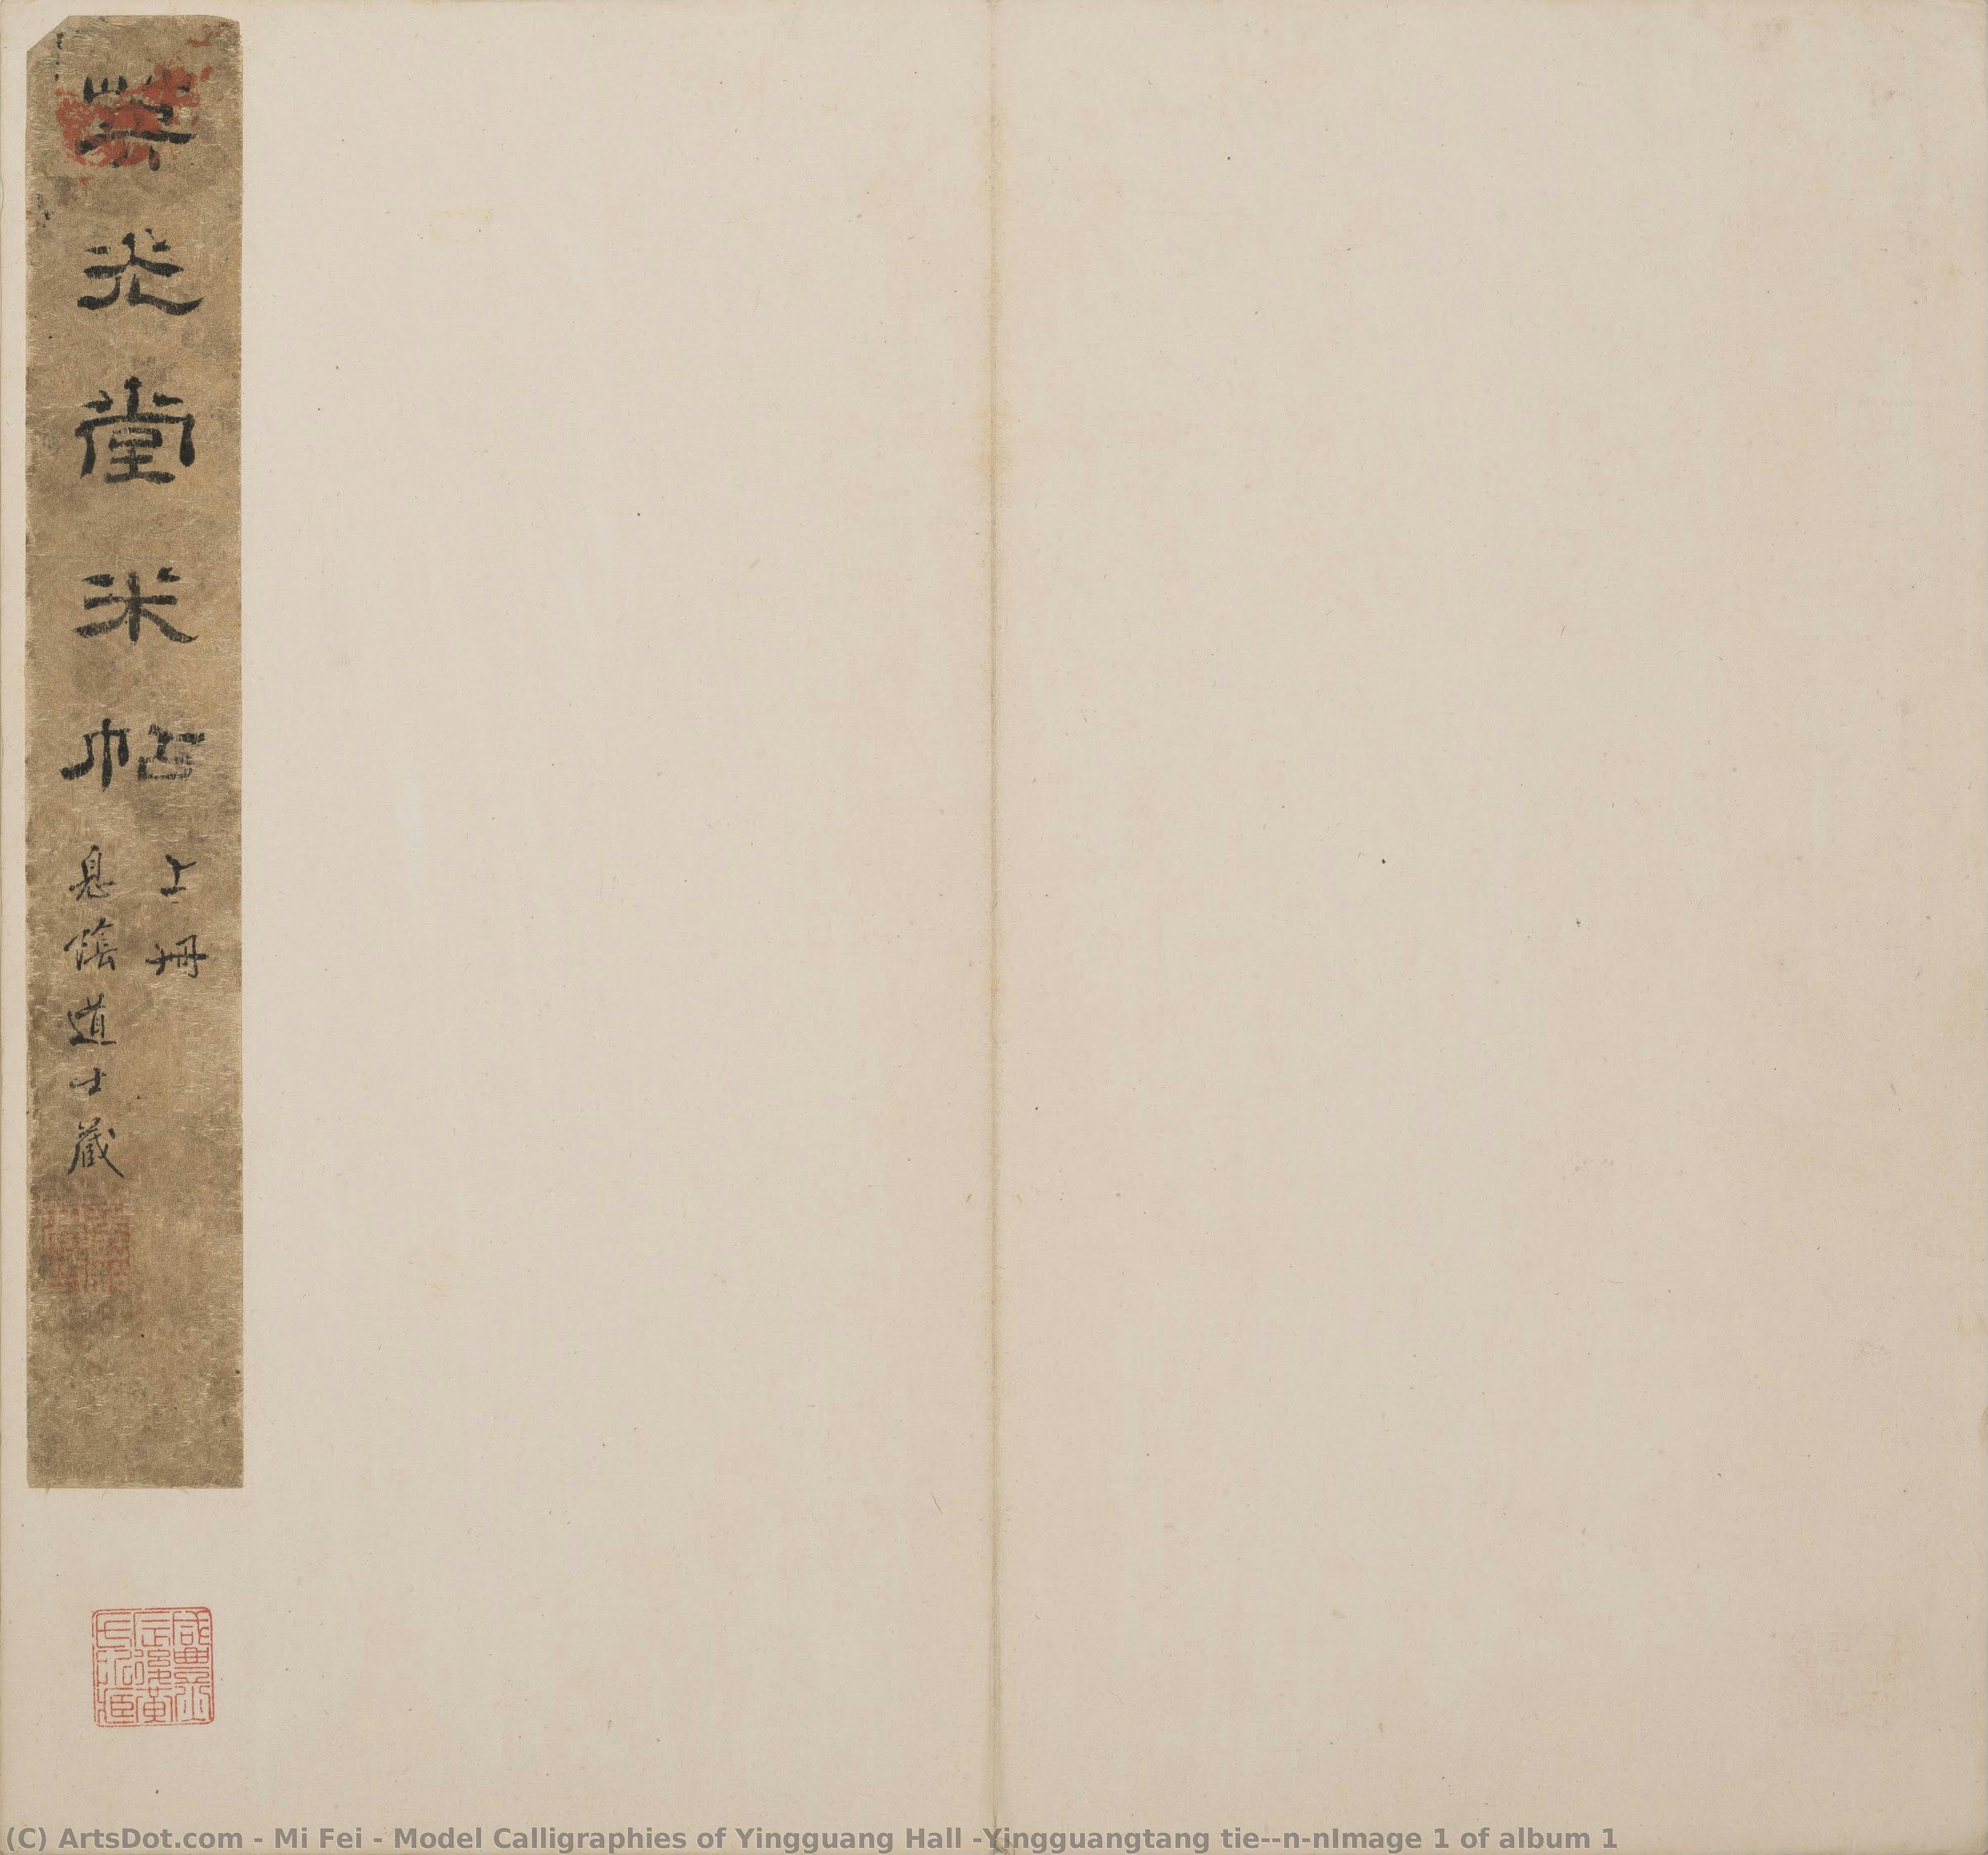 英光堂米帖
上冊
息陰道士藏
(C) ArtsDot.com - Mi Fei - Model Calligraphies of Yingguang Hall -Yingguangtang tie--n-nImage 1 of album 1